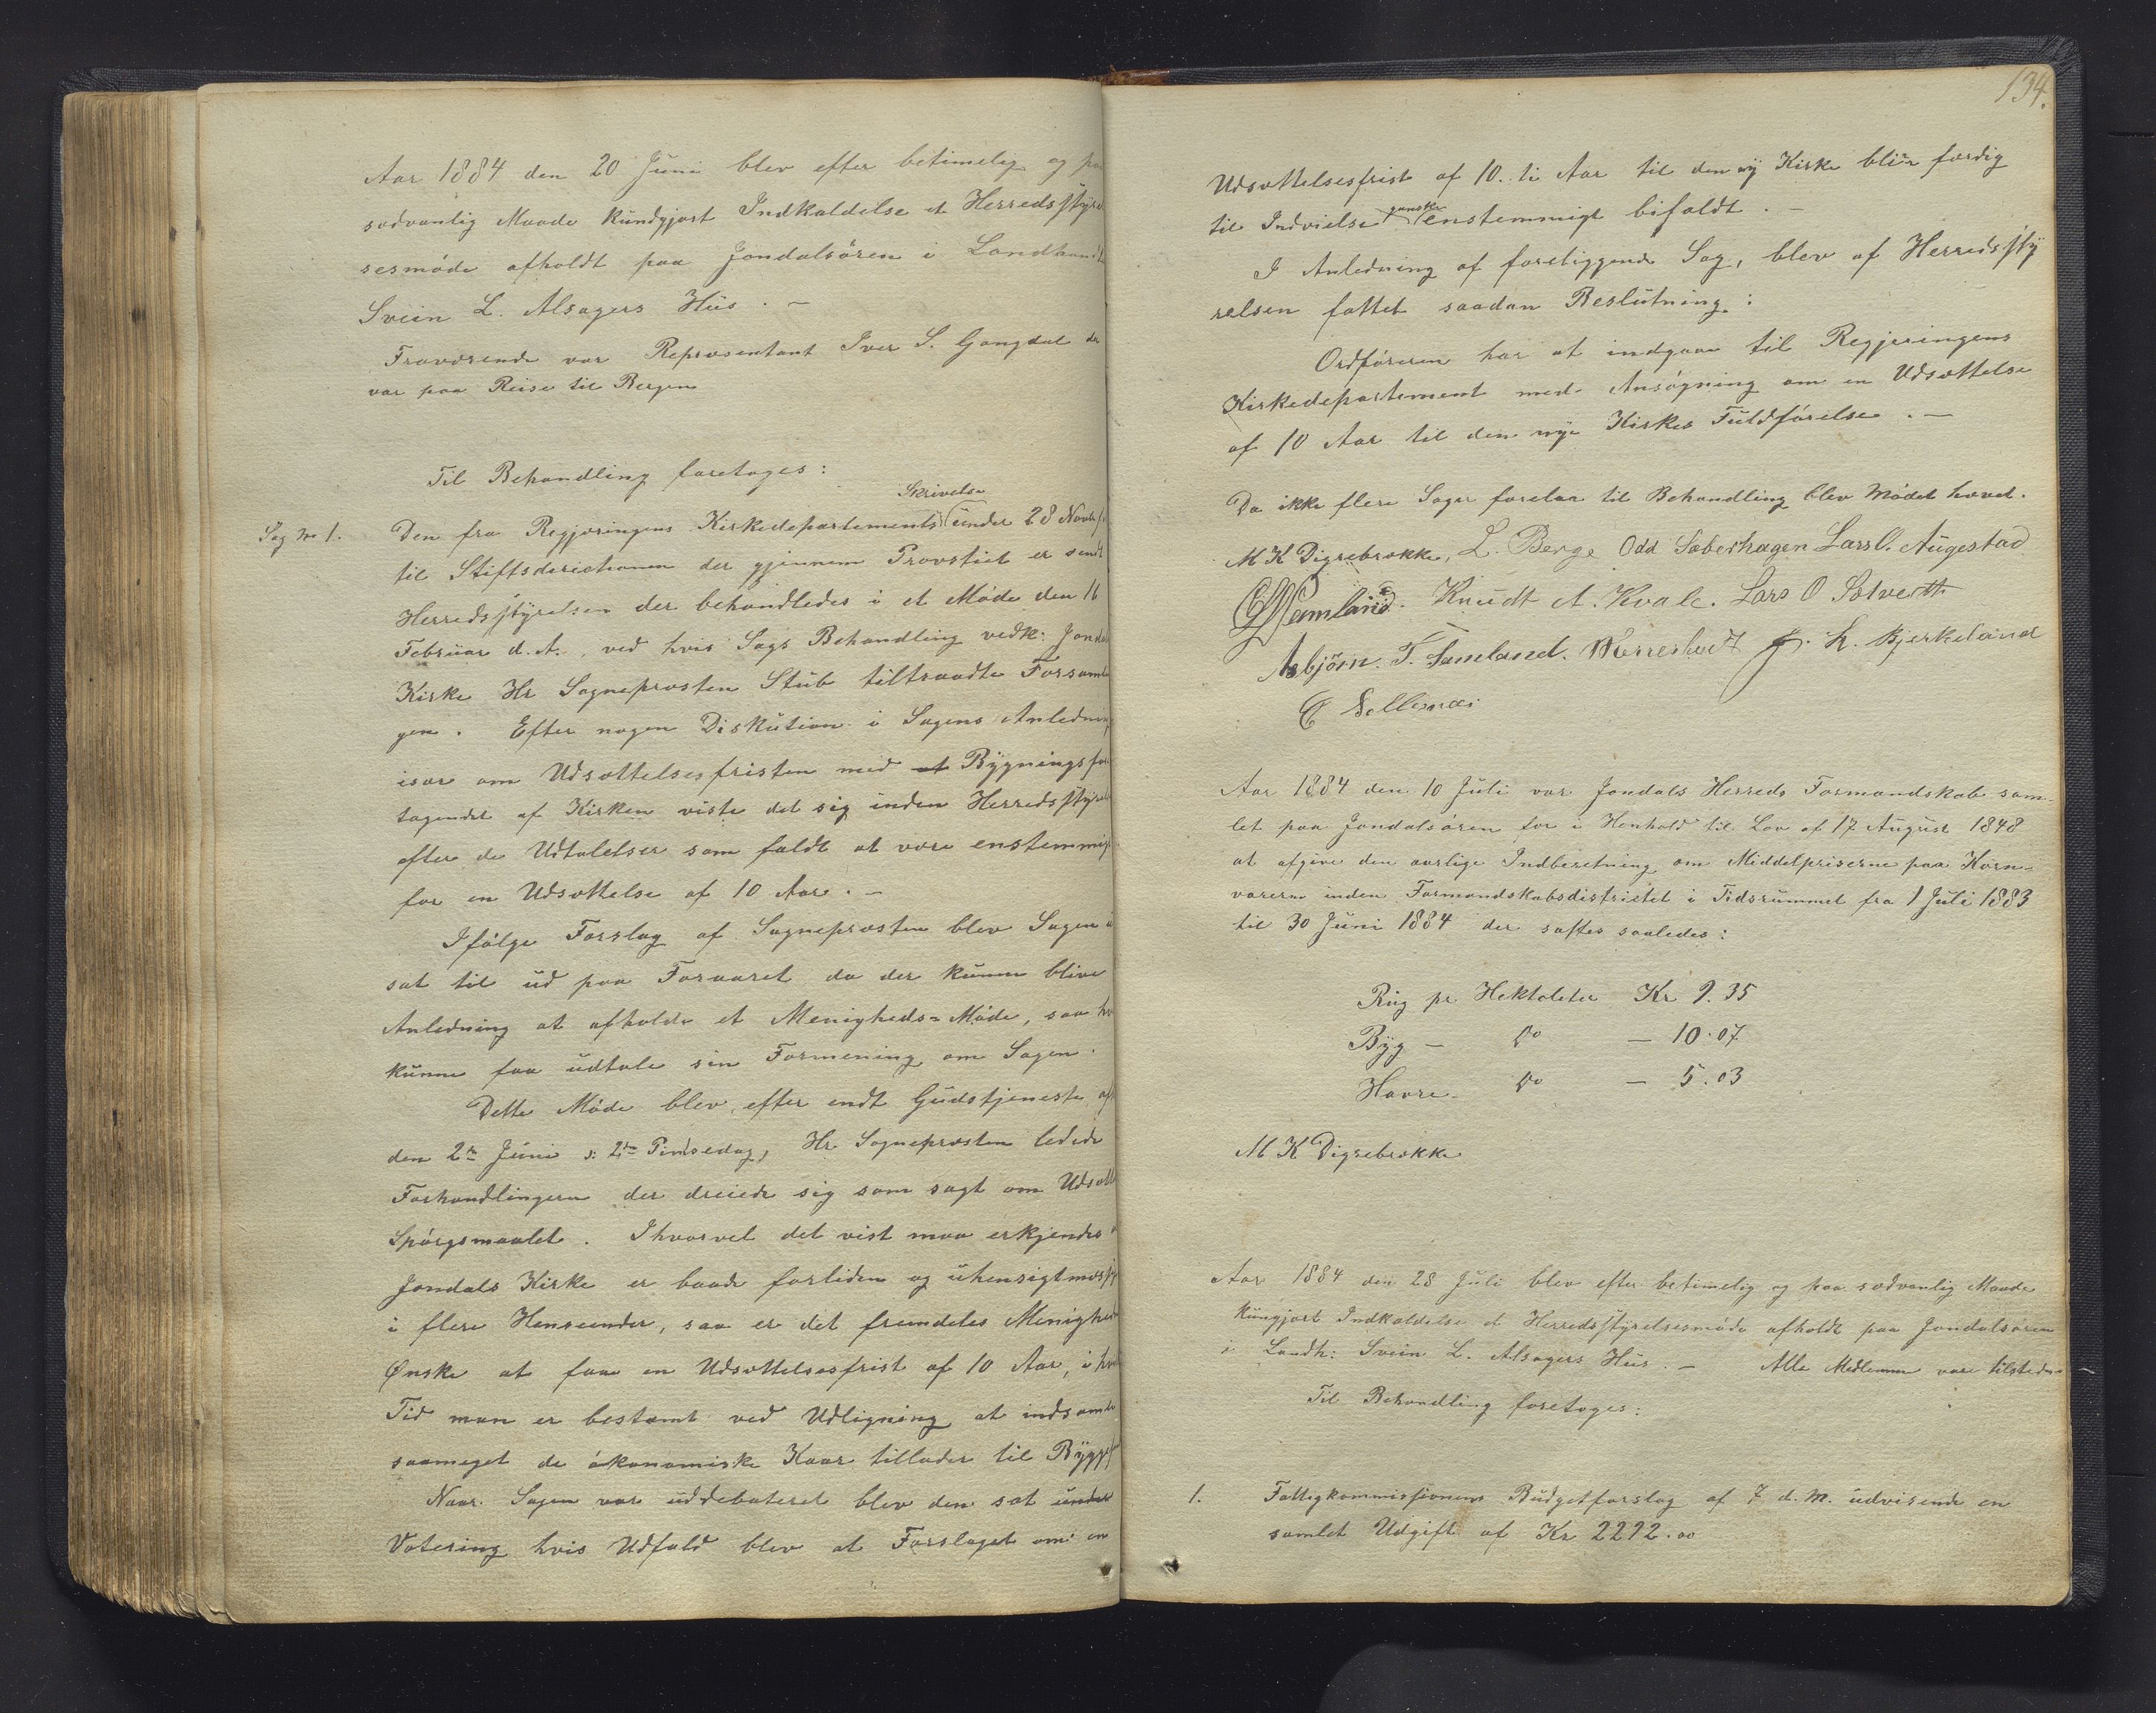 Aar 1884 den 20 Juni blev efter betimelig og paa
sædvanlig Maade kundgjort Indkaldelse et Herredsstyrel
sesmøde afholdt paa Jondalsøren i Landhandl
Svein L. Alsagers Hus. —
Fraværende var Repræsentant Iver S. Gangdal der
var paa Reise til Bergen
Til Behandling foretoges:
Skrivelse
Sag No 1. Den fra Regjeringens Kirkedepartements under 28 Novbr
til Stiftsdirectionen der gjennem Provstiet er sendt
Herredsstyrelsen der behandledes i et Møde den 16
Februar d. A., ved hvis Sags Behandling vedk: Jondal
Kirke Hr Sognepræsten Stub tiltraadte Forsaml
gen. Efter nogen Diskution i Sagens Anledning
især om Udsættelsesfristen med at Bygningsfore
tagendet af Kirken viste det sig inden Herredsstyrel
efter de Udtalelser som faldt at være enstemmig
for en Udsættelse af 10 Aar. —
Ifølge Forslag af Sognepræsten blev Sagen u
sat til ud paa Foraaret da der kunne blive
Anledning at afholde et Menigheds=Møde, saa hv
kunne faa udtale sin Formening om Sagen.
Dette Møde blev, efter endt Gudstjeneste af
den 2den Juni ɔ: 2den Pindsedag, Hr. Sognepræsten ledede
Forhandlingerne der dreiede sig som sagt om Udsætt
Spørgsmaalet. Ihvorvel det vist maa erkjendes a
Jondals Kirke er baade forliden og uhensigtmæssig
i flere Henseender, saa er det fremdeles Menighed
Ønske at faa en Udsættelsesfrist af 10 Aar, i hvil
Tid man er bestemt ved Udligning at indsamle
saameget de økonomiske Kaar tillader til Bygge
Naar Sagen var uddebateret blev den sat under
Votering hvis Udfald blev at Forslaget om en
134.
Udsættelsesfrist af 10. ti Aar til den ny Kirke blir færdig
ganske
til Indvielse enstemmigt bifaldt. —
I Anledning af foreliggende Sag, blev af Herredssty
relsen fattet saadan Beslutning:
Ordføreren har at indgaa til Regjeringens
Kirkedepartement med Ansøgning om en Udsættelse
af 10 Aar til den nye Kirkes Fuldførelse. —
Da ikke flere Sager forelaa til Behandling blev Mødet hævet.
M K Digrebrække, L. Berge Odd Sæberhagen Lars O. Augestad
Samland. Knudt A. Kvale. Lars O Solvedt
Asbjørn. T. Samland. Herrestvedt J. L. Bjerkeland
C Sellesnæs
Aar 1884 den 10 Juli var Jondals Herreds Formandskab sam-
let paa Jondalsøren for i Henhold til Lov af 17 August 1848
at afgive den aarlige Indberetning om Middelpriserne paa Korn-
varerne inden Formandskabsdistriktet i Tidsrummet fra 1 Juli 1883
til 30 Juni 1884 der sattes saaledes:
Rug pr Hektoleter Kr 9.35
Byg — do — 10.07
Havre — do — 5.03
M K Digrebrække
Aar 1884 den 28 Juli blev efter betimelig og paa sædvanlig Maade
kungjort Indkaldelse et Herredsstyrelsesmøde afholdt paa Jondalsøren
i Landh: Svein L. Alsagers Hus. — Alle Medlemmer vare tilstede —
Til Behandling foretoges:
1. Fattigkommissionens Budgetforslag af 7 d. M. udvisende en
samlet Udgift af Kr 2292.00